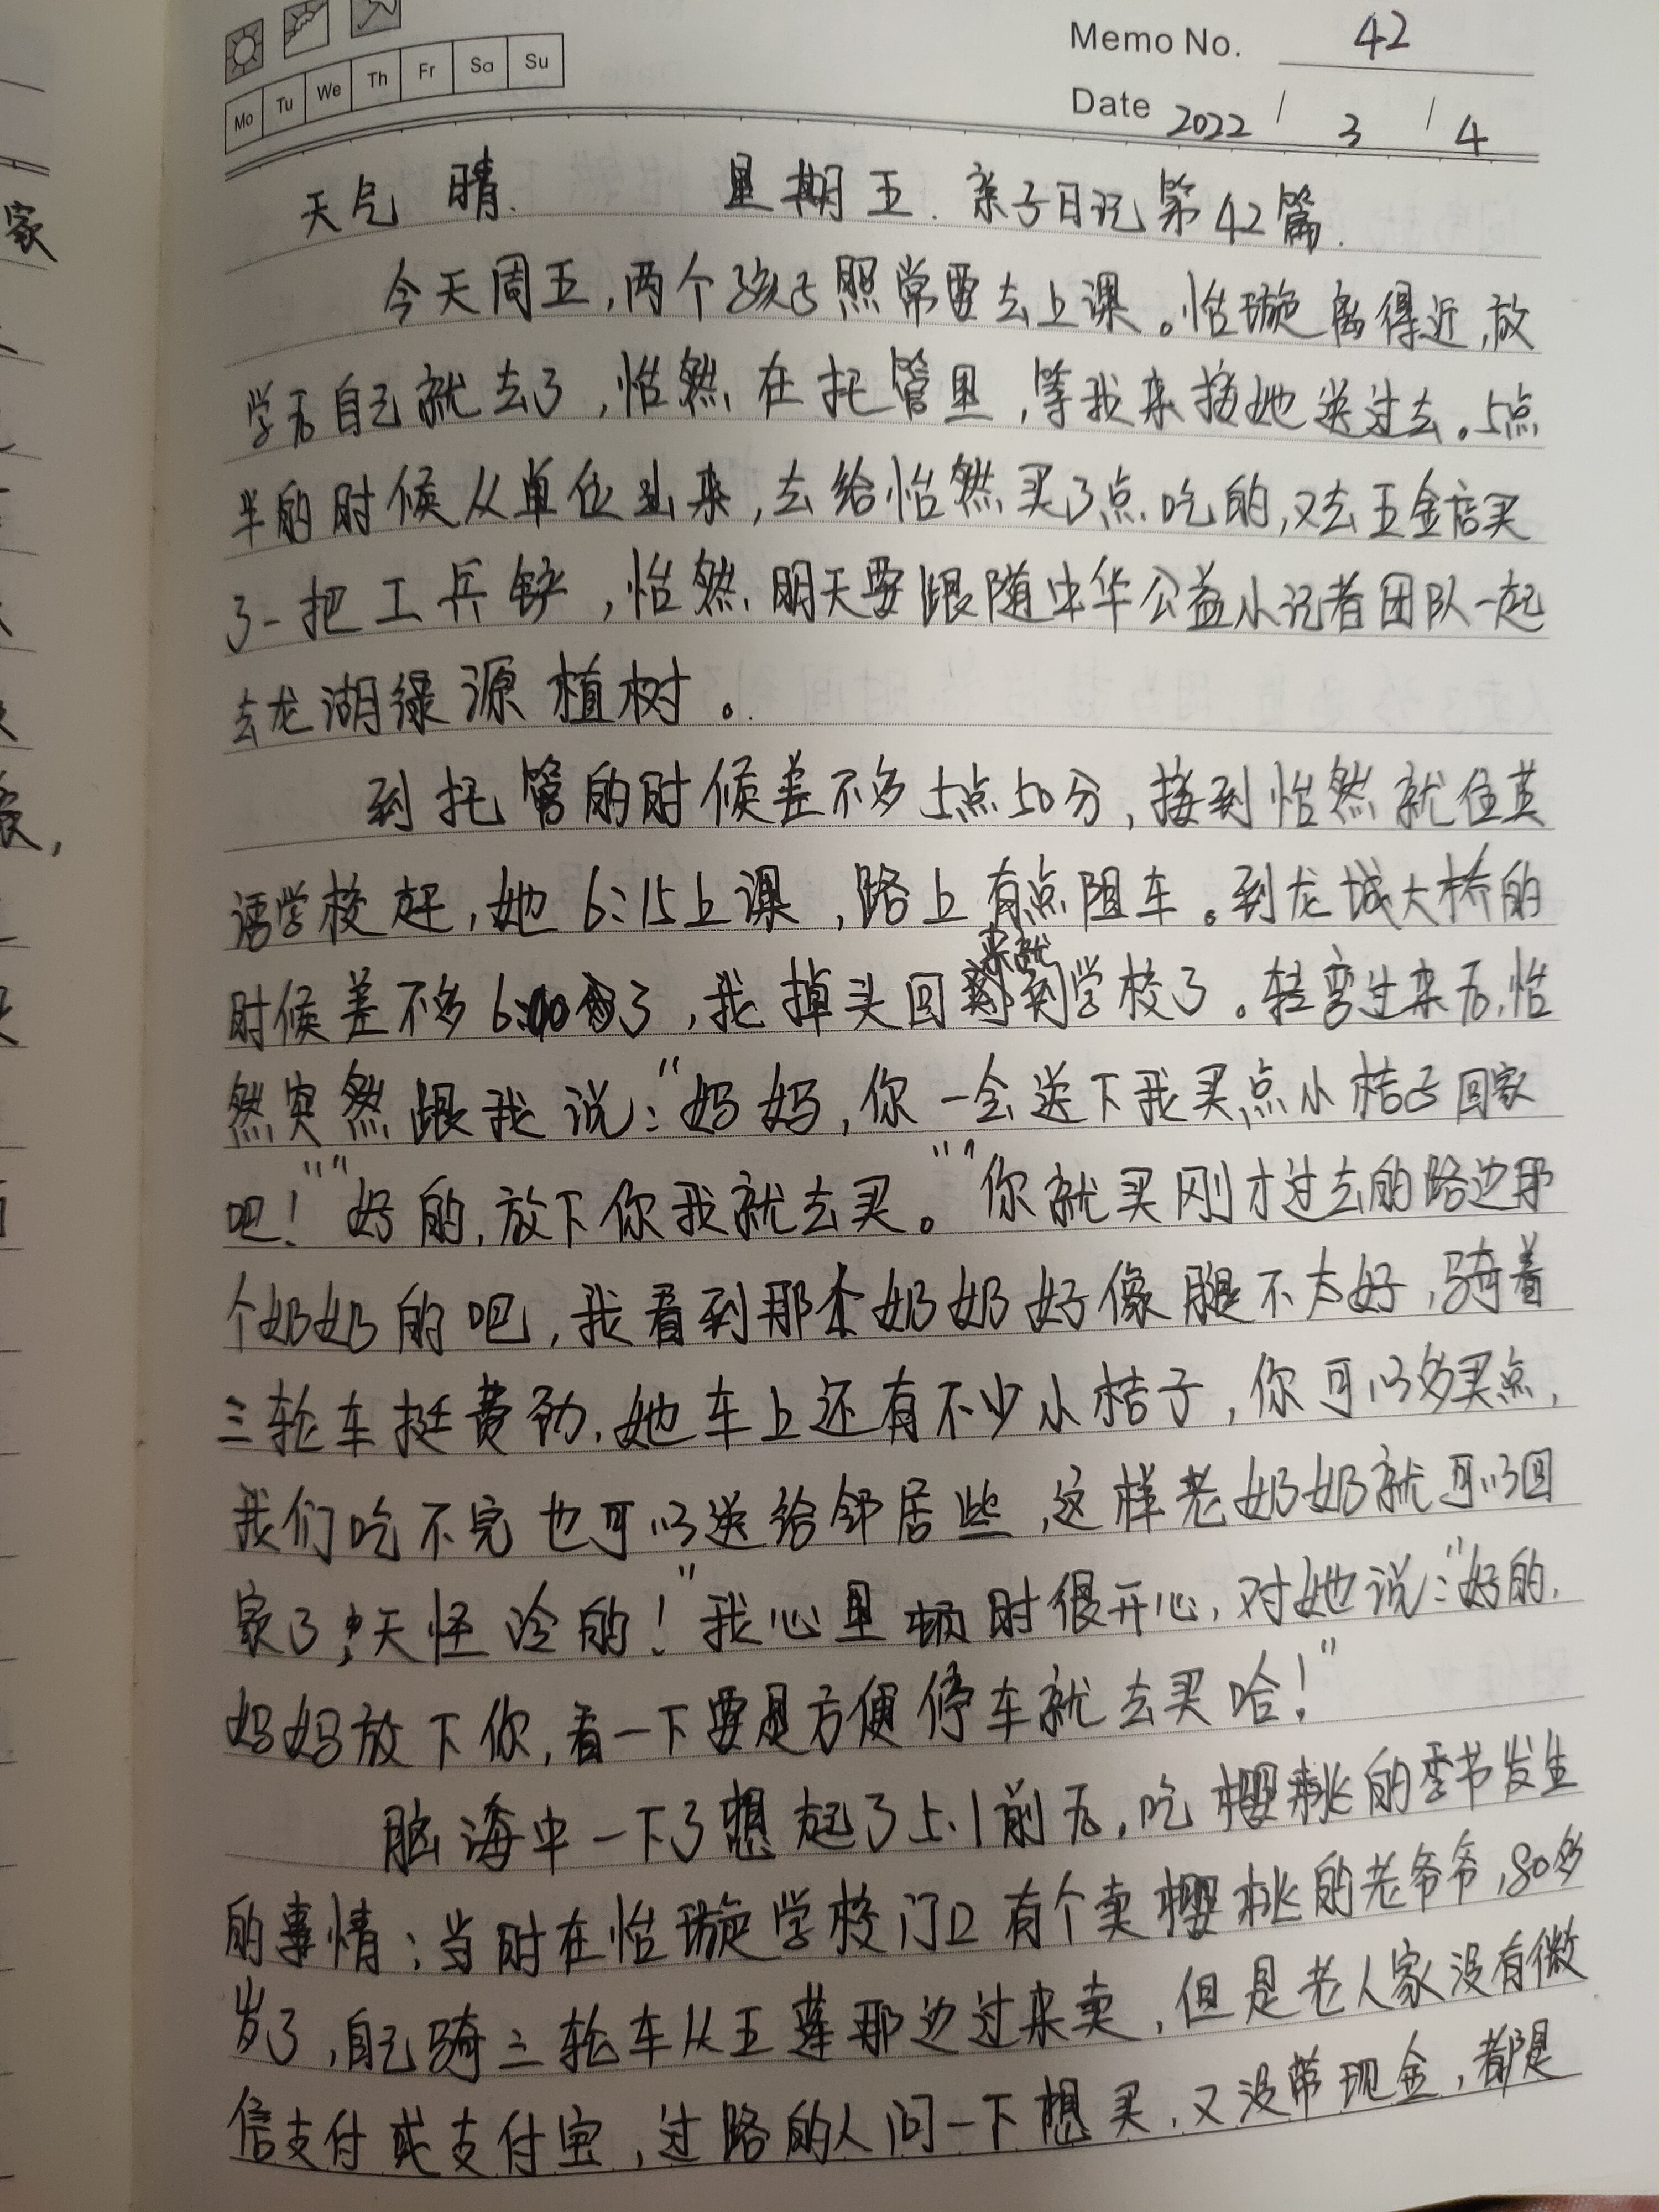 Memo No. 42
Mo Tu We Th Fr Sa Su
Date 2022 / 3 / 4
天气 晴. 星期五. 亲子日记第42篇.
今天周五,两个孩子照常要去上课。怡璇离得近,放
学后自己就去了,怡然在托管里,等我来接她送过去。5点
半的时候从单位出来,去给怡然买了点吃的,又去五金店买
了一把工兵铲,怡然明天要跟随中华公益小记者团队一起
去龙湖绿源植树。
到托管的时候差不多5点50分,接到怡然就往英
语学校赶,她6:15上课,路上有点阻车。到龙城大桥的
时候差不多6:00了,我掉头回来就到学校了。转弯过来后,怡
然突然跟我说:“妈妈,你一会送下我买点小桔子回家
吧!”“好的,放下你我就去买。”“你就买刚才过去的路边那
个奶奶的吧,我看到那个奶奶好像腿不太好,骑着
三轮车挺费劲,她车上还有不少小桔子,你可以多买点,
我们吃不完也可以送给邻居些,这样老奶奶就可以回
家了,天怪冷的!”我心里顿时很开心,对她说:“好的,
妈妈放下你,看一下要是方便停车就去买哈!”
脑海中一下子想起了5.1前后,吃樱桃的季节发生
的事情:当时在怡璇学校门口有个卖樱桃的老爷爷,80多
岁了,自己骑三轮车从五莲那边过来卖,但是老人家没有微
信支付或支付宝,过路的人问一下想买,又没带现金,都是
家